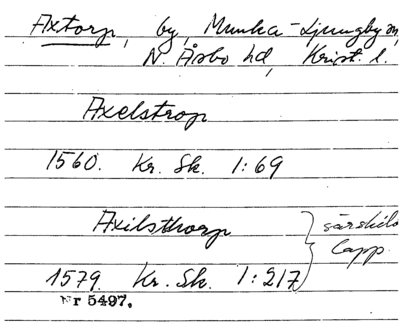 Axtorp, by, Munka-Ljungby sn,
N. Åsbo hd, Krist. l.
Axelstrop
1560. Kr. Sk. 1:69
Axilsthorp
särskilt
lapp.
1579. Kr. Sk. 1:217
Nr 5497.